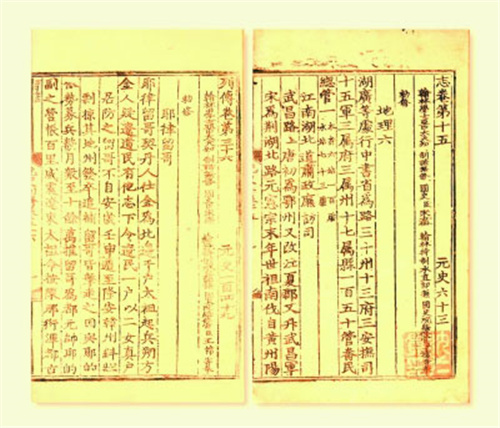 志卷第十五 元史六十三
翰林學士亞中大夫知制誥兼修國史臣宋濂 翰林待制承直郎兼國史院編修官臣
勑修
地理六
湖廣等處行中書省為路三十州十三府三安撫司
十五軍三屬府三屬州十七屬縣一百五十管番民
總管一
江南湖北道肅政廉訪司
武昌路上唐初為鄂州又改江夏郡又升武昌軍
宋為荊湖北路元憲宗末年世祖南伐自黃州陽
列傳卷第三十六 元史一百四十九
勑修
耶律留哥
耶律留哥契丹人仕金為北邊千戶太祖起兵朔方
金人疑遼遺民有他志下令遼民一戶以二女真戶
居防之留哥不自安歲壬申遁至隆安韓州糾壯
剽掠其地州發卒追捕留哥皆擊走之因與耶的
合勢募兵數月眾至十餘萬推留哥為都元帥耶的
副之營帳百里威震遼東太祖命按陳那衍渾都古